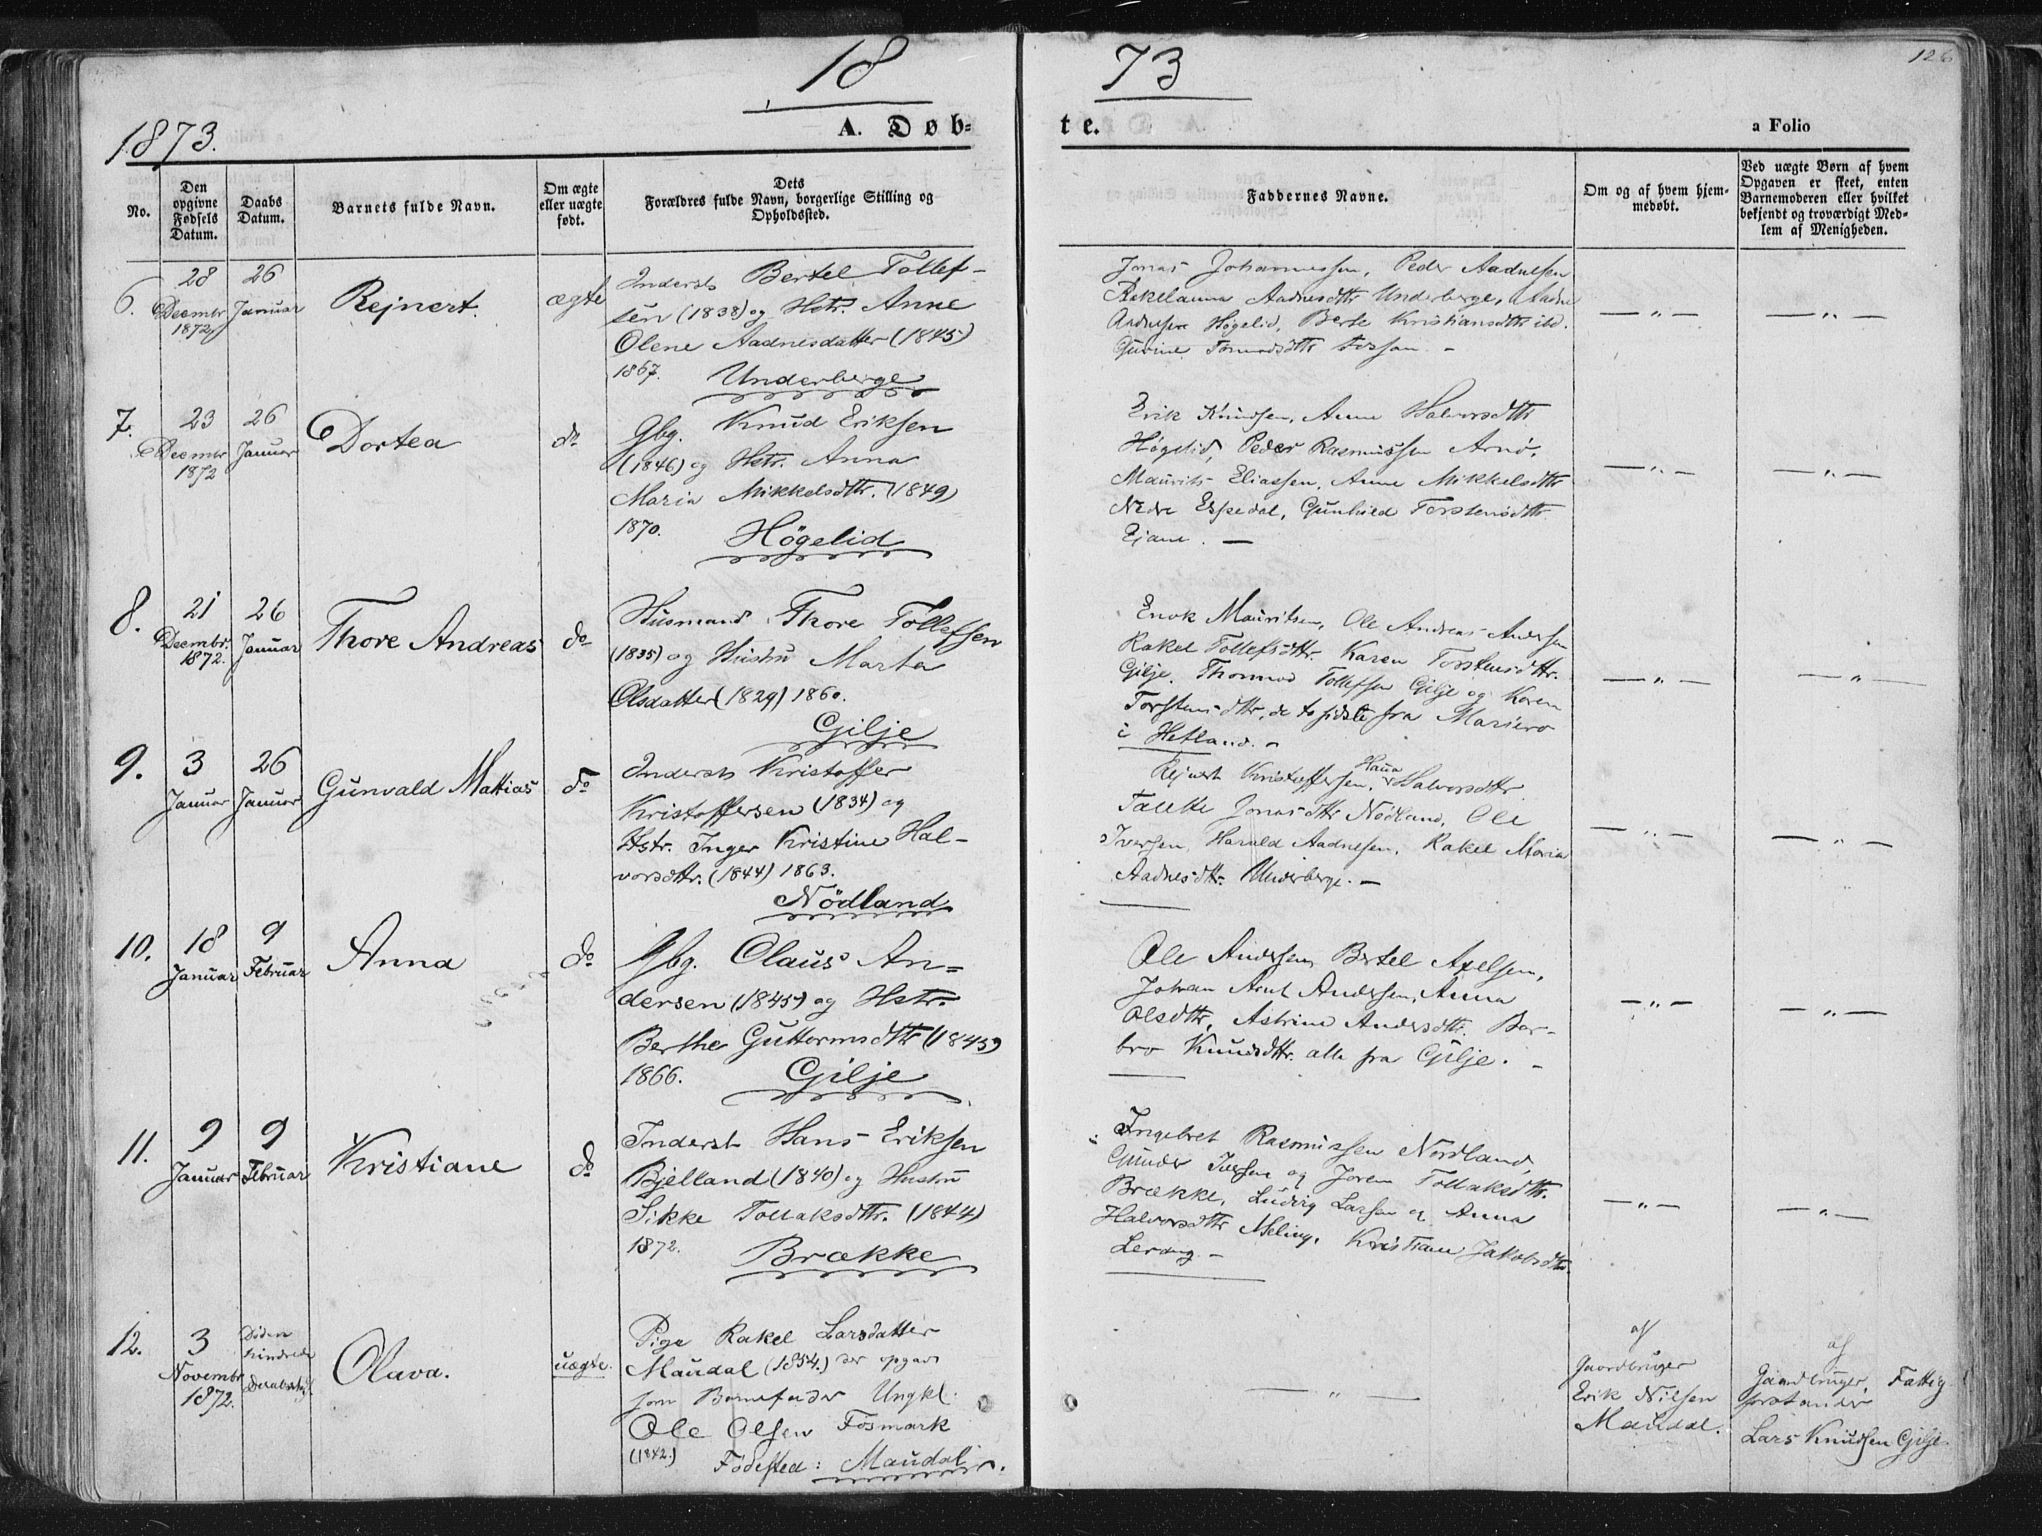 18
73
126
1873.
A. Døb-
te.
a Folio
No.
Den
opgivne
Fødsels
Datum.
Daabs
Datum.
Barnets fulde Navn.
Om ægte
eller uægte
født.
Dets
Forældres fulde Navn, borgerlige Stilling og
Opholdssted.
Faddernes Navne.
Om og af hvem hjem-
medøbt.
Ved uægte Børn af hvem
Opgaven er skeet, enten
Barnemoderen eller hvilket
bekjendt og troværdigt Med-
lem af Menigheden.
6.
28
Decembr
1872
26
Januar
Rejnert.
ægte
Inderst Bertel Tollef-
sen (1838) og Hstr. Anne
Olene Aadnesdatter (1845)
1867. Underberge
Jonas Johannessen, Peder Aadnesen
Aadnesdttr Underberge, Aadne
Aadnesen Høgelid, Berte Kristiansdttr ibd.
Gurine Tormodsdttr Fossan. -
— " —
— " —
7.
23
Decembr
1872
26
Januar
Dortea
do
Gbg. Knud Eriksen
(1846) og Hstr. Anna
Maria Mikkelsdttr. (1849)
1870. Høgelid
Erik Knudsen, Anne Halvorsdttr
Høgelid, Peder Rasmussen Arnø,
Maurits Eliassen, Anne Mikkelsdttr
Nedre Espedal, Gunhild Torstensdttr
Ejane. —
— " —
— " —
8.
21
Decembr.
1872.
26
Januar
Thore Andreas
do
Husmand Thore Tollefsen
(1835) og Hustru Marta
Olsdatter (1829) 1860.
Gilje
Enok Mauritsen, Ole Andreas Andersen
Rakel Tollefsdttr. Karen Torstensdttr.
Gilje. Thormod Tollefsen Gilje og Karen
Torstensdttr, de to sidste fra Mariero
i Hetland. -
— " —
— " —
9.
3
Januar
26
Januar
Gunvald Mattias
do
Inderst Kristoffer
Kristoffersen (1834) og
Hstr. Inger Kristine Hal-
vorsdttr. (1844) 1863.
Nødland
Rejnert Kristoffersen, Hana Halvorsdttr
Talette Jonasdttr Nødland, Ole
Iversen, Harald Aadnesen, Rakel Maria
Aadnesdttr. Underberge. —
— " —
— " —
10.
18
Januar
9
Februar
Anna
do
Gbg. Claus An-
dersen (1845) og Hstr.
Berthe Guttormsdttr (1845)
1866. Gilje
Ole Andersen, Bertel Axelsen,
Johan Arnt Andersen, Anna
Olsdttr, Astrine Andersdttr. Bar-
bro Knudsdttr. alle fra Gilje. -
— " —
— " —
11.
9
Januar
9
Februar
Kristiane
do
Inderst Hans Eriksen
Bjelland (1840) og Hustru
Sikke Tollaksdttr. (1844)
1872. Brække
Ingebret Rasmussen Nordland,
Gunder Iversen og Joren Tollaksdttr.
Brække, Ludvig Larsen og Anna
Halvorsdttr Meling, Kristiane Jakobsdttr.
Lerang -
— " —
— " —
12.
3
Novembr
1872.
Døden
hindrede
Olava.
uægte.
Pige Rakel Larsdatter
Maudal (1854.) der opgav
som Barnefader Ungkl.
Ole Olsen Fosmark
(1842.)
Fødested: Maudal.
— " —
af
Gaardbruger
Erik Nilsen
Maudal.
af
Gaardbruger, Fattig
forstander
Lars Knudsen Gilje.